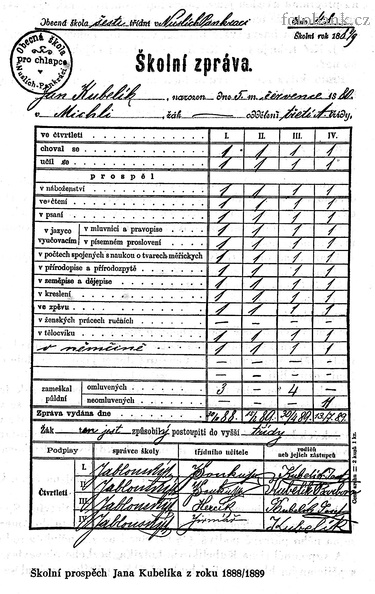 Obecná škola šesti třídní v Nuslích Pankráci
Školní rok 1888/9
Obecná škola
pro chlapce
Nuslích-Pankráci
Školní zpráva.
Jan Kubelík, narozen dne 5. m. července 1880.
v Michli, žák oddělení třetí A. třídy,
ve čtvrtletí I. II. III. IV.
choval se 1 1 1 1
učil se 1 1 1 1
prospěl
v náboženství 1 1 1 1
ve čtení 1 1 1 1
v psaní 1 1 1 1
v jazyce vyučovacím v mluvnici a pravopise 1 1 1 1
v písemném proslovení 1 1 1 1
v počtech spojených s naukou o tvarech měřických 1 1 1 1
v přírodopise a přírodozpytě 1 1 1 1
v zeměpise a dějepise 1 1 1 1
v kreslení 1 1 1 1
ve zpěvu 1 1 1 1
v ženských pracech ručních — — — —
v tělocviku 1 1 1 1
v němčině 1 1 1 1
— — — —
— — — —
zameškal půldní omluvených 3 — 4 —
neomluvených — — —
Zpráva vydána dne
Žák jest způsobilý postoupiti do vyšší třídy
Podpisy správce školy třídního učitele rodičů neb jejich zástupců
Čtvrtletí
I. Jablonský Kubelík
II. Jablonský Kubelík
III. Jablonský Kubelík
IV. Jablonský Kubelík
Školní prospěch Jana Kubelíka z roku 1888/1889